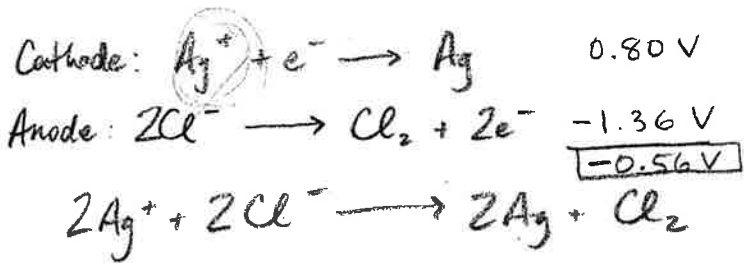 Cathode: Ag⁺ + e⁻ → Ag 0.80 V
Anode: 2Cl⁻ → Cl₂ + 2e⁻ -1.36 V
-0.56 V
2Ag⁺ + 2Cl⁻ → 2Ag + Cl₂